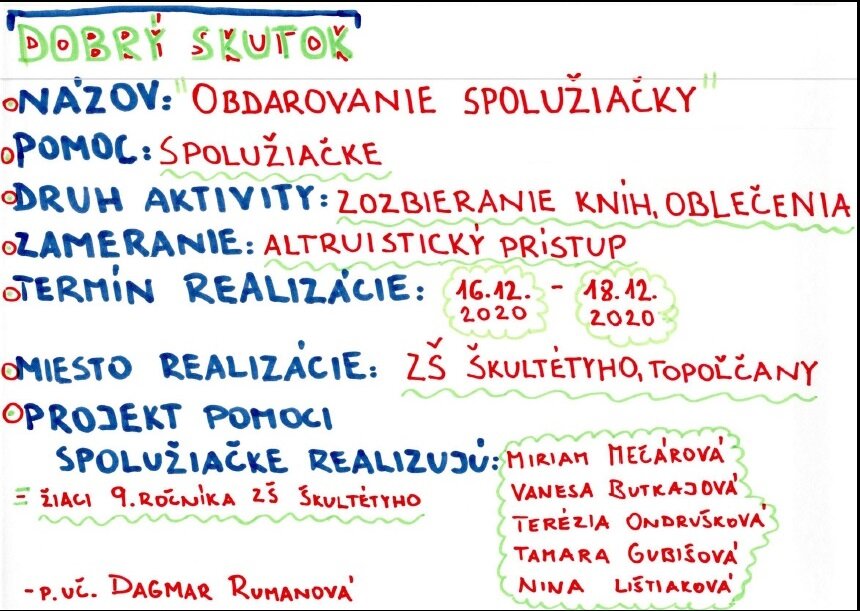 DOBRÝ SKUTOK
NÁZOV: "OBDAROVANIE SPOLUŽIAČKY"
POMOC: SPOLUŽIAČKE
DRUH AKTIVITY: ZOZBIERANIE KNÍH, OBLEČENIA
ZAMERANIE: ALTRUISTICKÝ PRÍSTUP
TERMÍN REALIZÁCIE: 16.12. - 18.12.
2020 2020
MIESTO REALIZÁCIE: ZŠ ŠKULTÉTYHO, TOPOĽČANY
PROJEKT POMOCI
SPOLUŽIAČKE REALIZUJÚ: MIRIAM MEČÁROVÁ
VANESA BUTKAJOVÁ
- ŽIACI 9. ROČNÍKA ZŠ ŠKULTÉTYHO
TERÉZIA ONDRUŠKOVÁ
TAMARA GUBIŠOVÁ
NINA LIŠTIAKOVÁ
- P. UČ. DAGMAR RUMANOVÁ